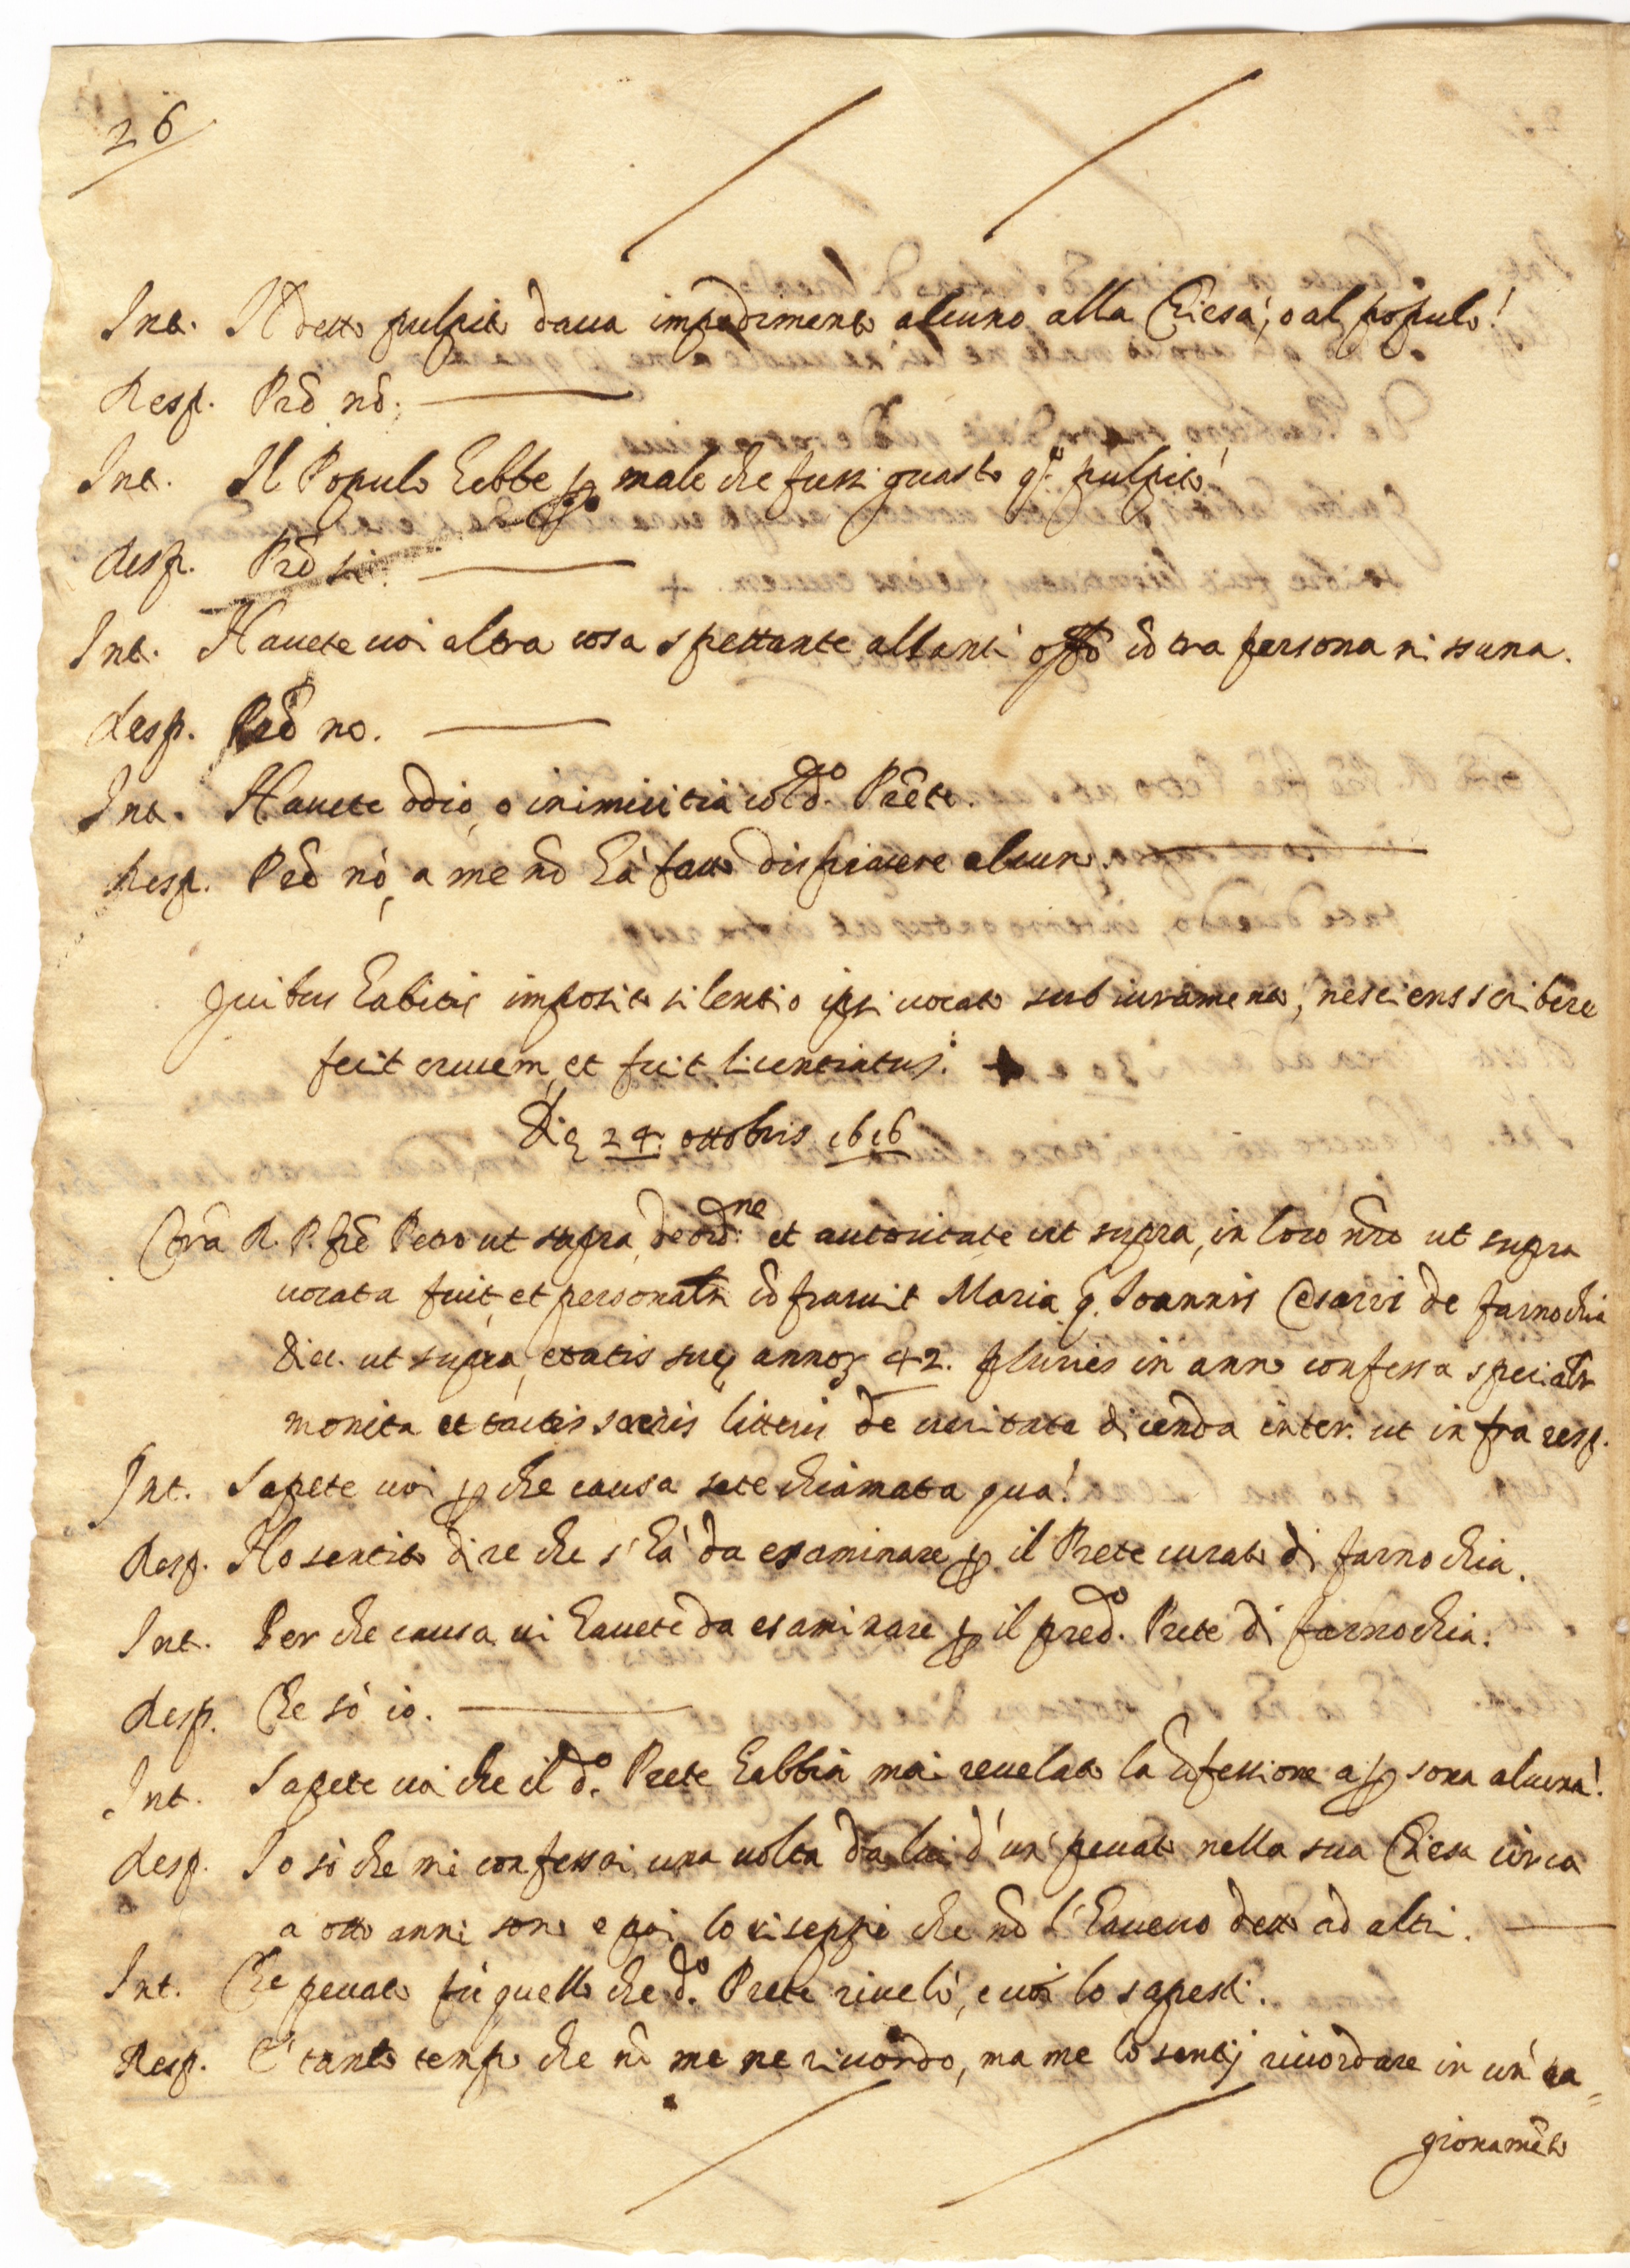 26
Int. Il detto pulpito daua impedimento alcuno alla Chiesa, o al populo!
Resp. Prẽ nõ.
Int. Il Populo hebbe ꝑ male che fussi guasto q.to pulpito!
Resp. Prẽ si.
Int. Hauete uoi altra cosa spettante al santo offo cõtra persona nissuna.
Resp. Prẽ no.
Int. Hauete odio, o inimicitia col d.o Prete.
Resp. Prẽ nò, a me nõ hà fatto dispiacere alcuno.
Quibus habitis imposito silentio ipsi uocato sub iuramento, nesciens scribere
fecit crucem, et fuit licentiatus. +
Die 24. ottobris 1616
Corã R. P. frẽ Petro ut supra, de ord.ne et autoritate ut supra, in loco nr̃o ut supra
uocata fuit, et personalr̃ cõparuit Maria q. Ioannis Cesarii de farnochia
dicc. ut supra, etatis sue annoꝝ 42. pluries in anno confessa specialr̃
monita et tactis sacris litteris de ueritate dicenda inter. ut infra resp.
Int. Sapete uoi ꝑ che causa sete chiamata qua!
Resp. Ho sentito dire che s'hà da examinare ꝑ il Prete curato di farnochia.
Int. Per che causa ui hauete da esaminare ꝑ il pred.o Prete di farnochia.
Resp. Che sò io.
Int. Sapete uoi che il d.o Prete habbia mai reuelato la cõfessione a ꝑsona alcuna!
Resp. Io sò che mi confessai una uolta da lui d'un' peccato nella sua Chiesa circa
a otto anni sono e poi lo riseppi che nõ l'haueuo detto ad altri.
Int. Che peccato fù quello che d.o Prete riuelò, e uoi lo sapesti.
Resp. E' tanto tempo che nõ me ne ricordo, ma me lo sentij ricordare in un' ra=
gionamẽto